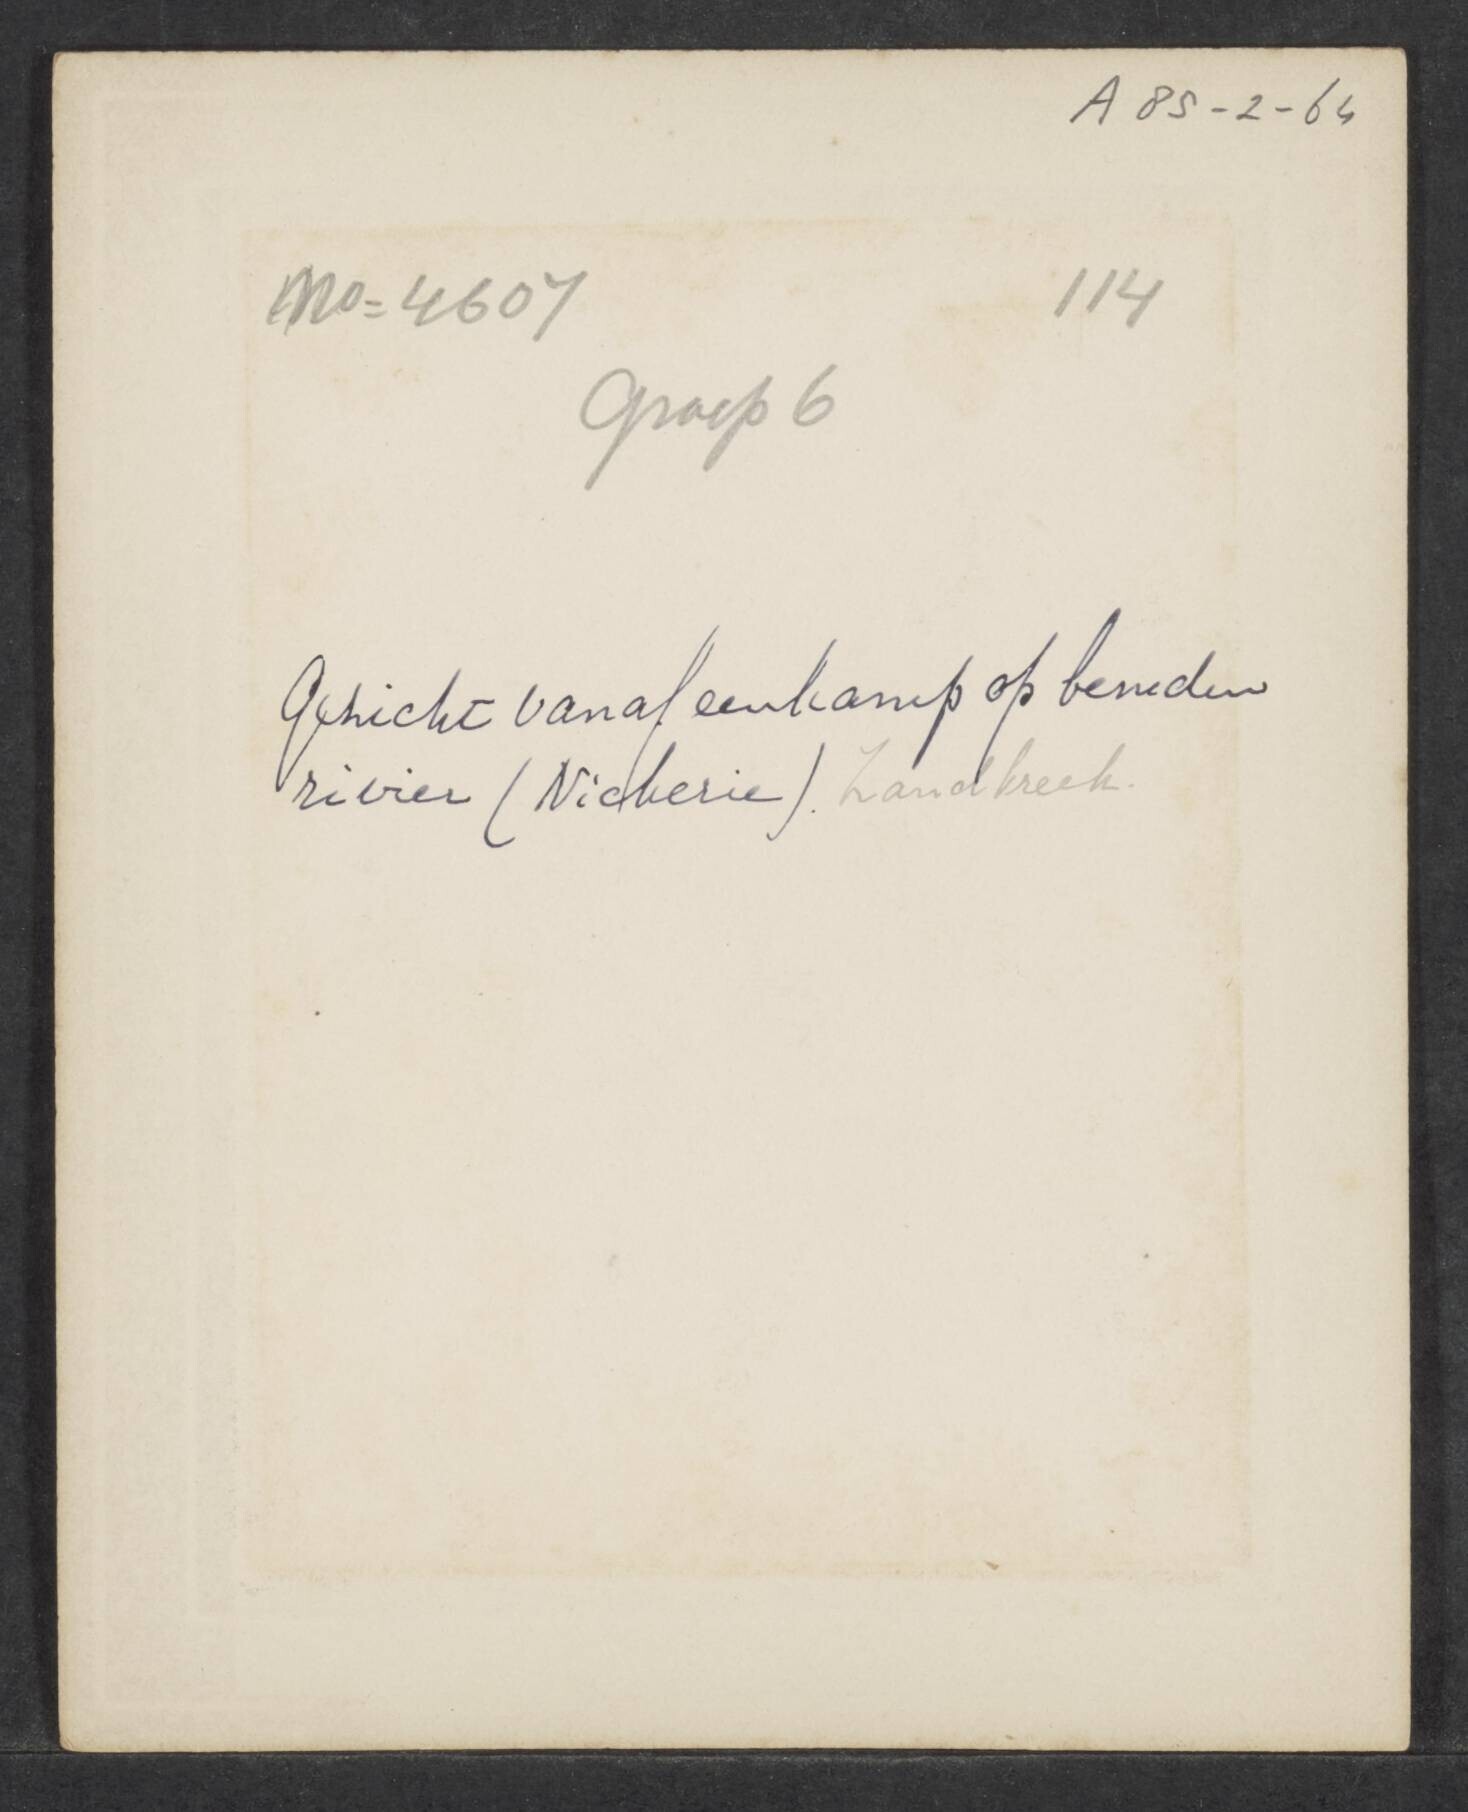 A 85-2-64
No=4607 114
Groep 6
Gezicht vanaf eenkamp op beneden
rivier (Nickerie). Zandkreek.